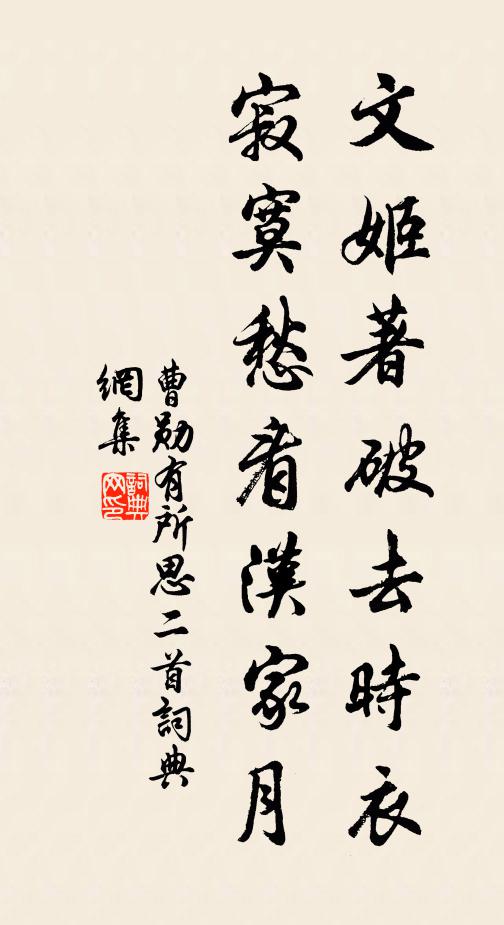 文姬著破去時衣
寂寞愁看漢家月
曹勛有所思二首詞典
網集
詞典
网印